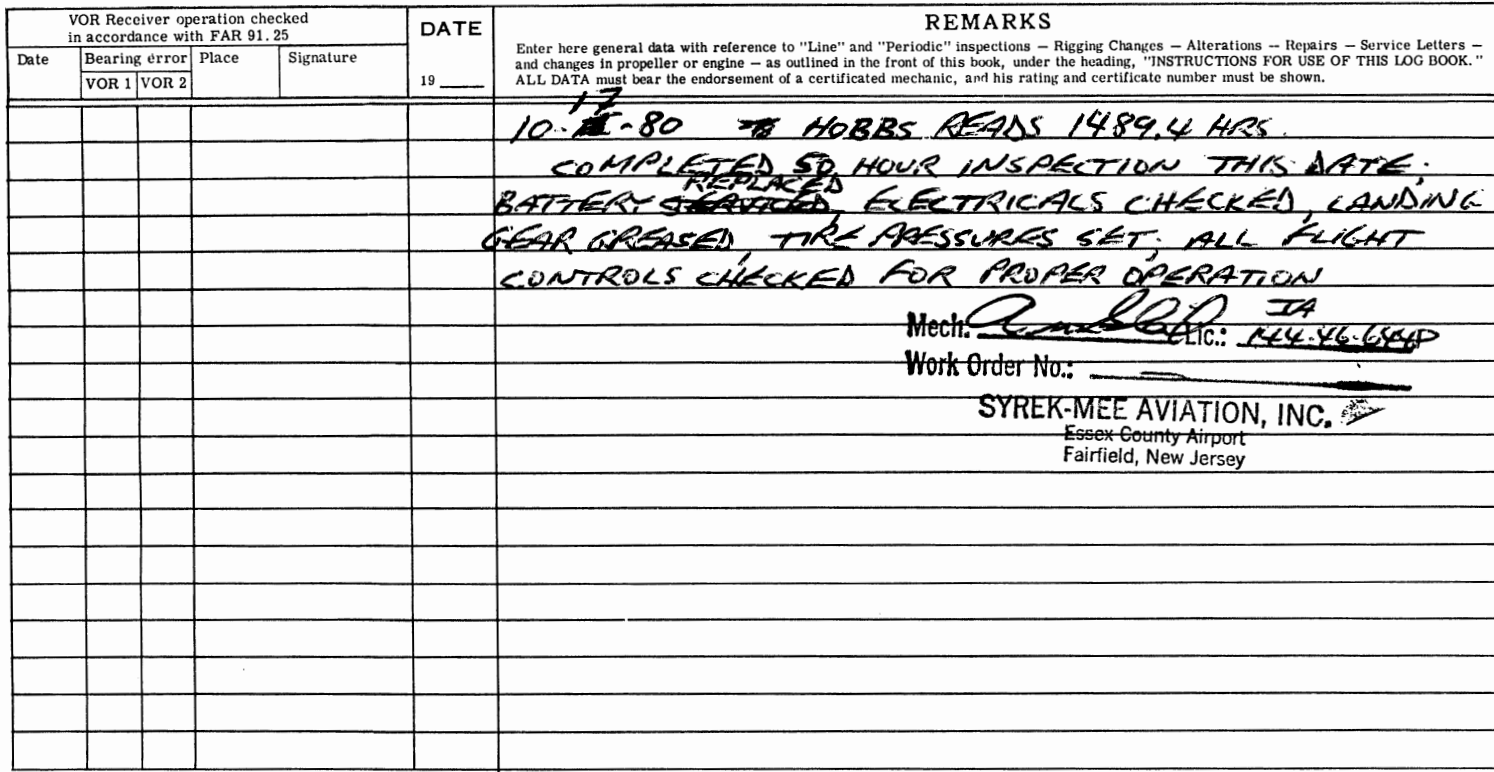 VOR Receiver operation checked
in accordance with FAR 91.25
Date Bearing error Place Signature
VOR 1 VOR 2
DATE
19
REMARKS
Enter here general data with reference to "Line" and "Periodic" inspections — Rigging Changes — Alterations -- Repairs — Service Letters —
and changes in propeller or engine — as outlined in the front of this book, under the heading, "INSTRUCTIONS FOR USE OF THIS LOG BOOK."
ALL DATA must bear the endorsement of a certificated mechanic, and his rating and certificate number must be shown.
10-17-80 HOBBS READS 1489.4 HRS.
COMPLETED 50 HOUR INSPECTION THIS DATE.
BATTERY REPLACED, ELECTRICALS CHECKED, LANDING
GEAR GREASED, TIRE PRESSURES SET, ALL FLIGHT
CONTROLS CHECKED FOR PROPER OPERATION
Mech: Lic.: IA
Work Order No.:
SYREK-MEE AVIATION, INC.
Essex County Airport
Fairfield, New Jersey